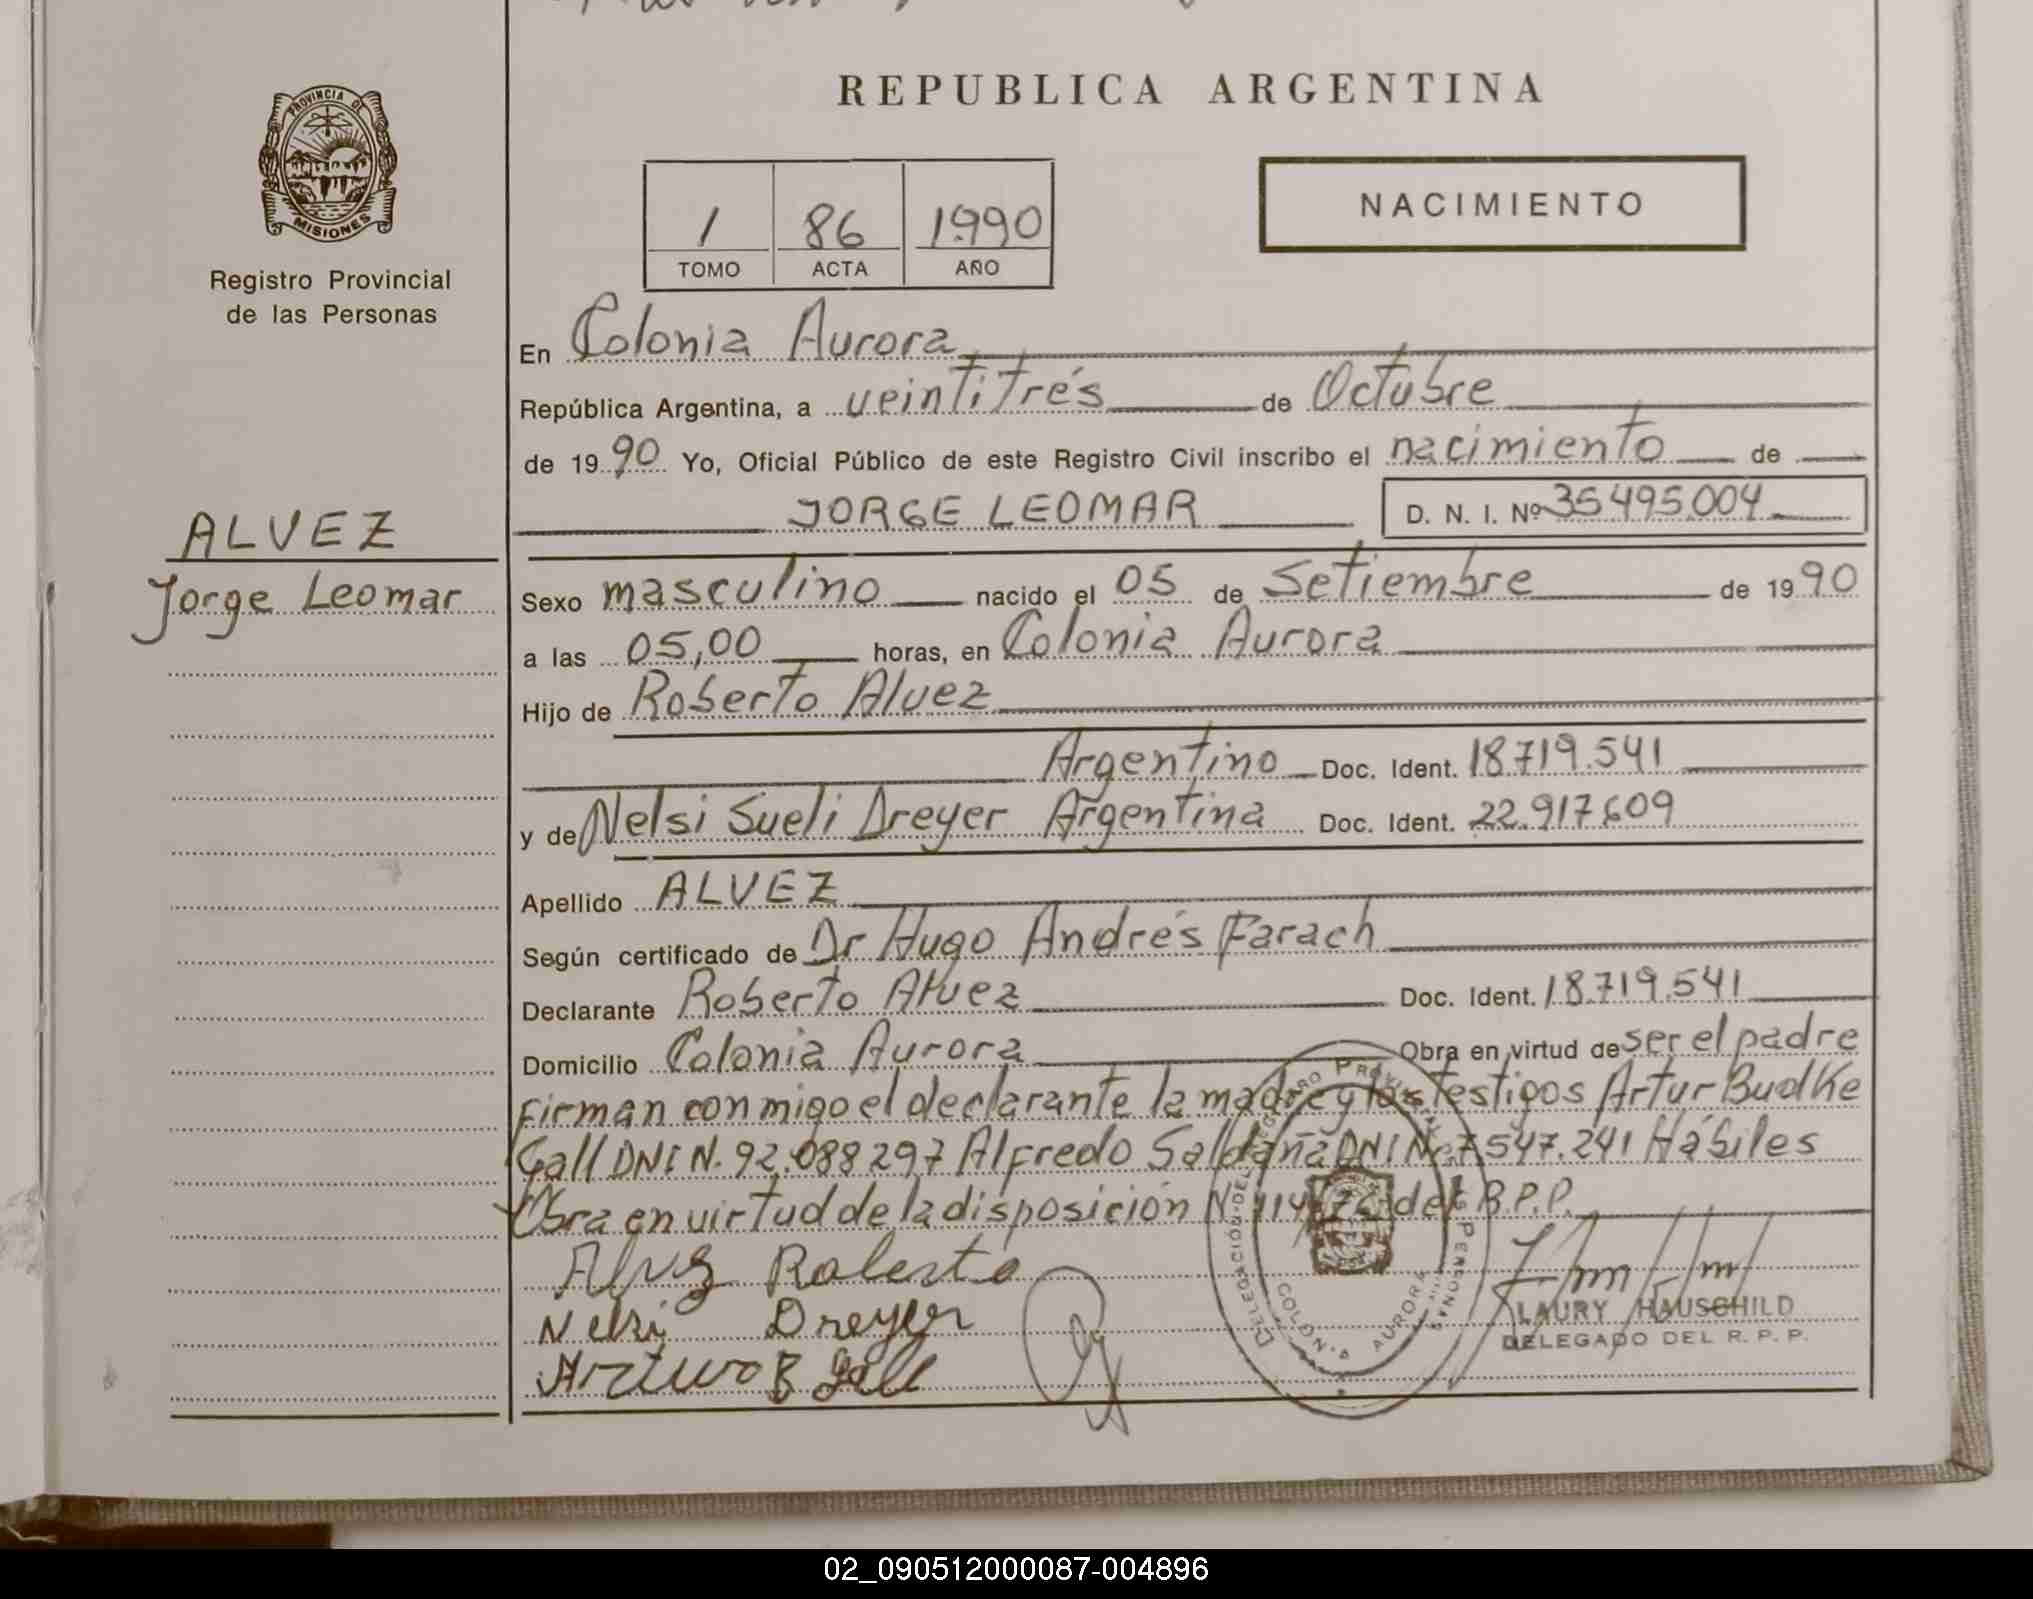 PROVINCIA DE
MISIONES
Registro Provincial
de las Personas
ALVEZ
Jorge Leomar
REPUBLICA ARGENTINA
1 86 1990
TOMO ACTA AÑO
NACIMIENTO
En Colonia Aurora
República Argentina, a veintitrés de Octubre
de 1990 Yo, Oficial Público de este Registro Civil inscribo el nacimiento de
JORGE LEOMAR D. N. I. Nº 35495.004
Sexo masculino nacido el 05 de Setiembre de 1990
a las 05,00 horas, en Colonia Aurora
Hijo de Roberto Alvez
Argentino Doc. Ident. 18.719.541
y de Nelsi Sueli Dreyer Argentina Doc. Ident. 22.917.609
Apellido ALVEZ
Según certificado de Dr Hugo Andrés Farach
Declarante Roberto Alvez Doc. Ident. 18.719.541
Domicilio Colonia Aurora Obra en virtud de ser el padre
Firman conmigo el declarante la madre y los testigos Artur Budke
Gall DNI N. 92.088297 Alfredo Saldaña DNI N. 7.547.241 Hábiles
Obra en virtud de la disposición N. 114/76 del R.P.P.
Alvez Roberto
Nelsi Dreyer
Arturo B Gall
LAURY HAUSCHILD
DELEGADO DEL R. P. P.
02_090512000087-004896